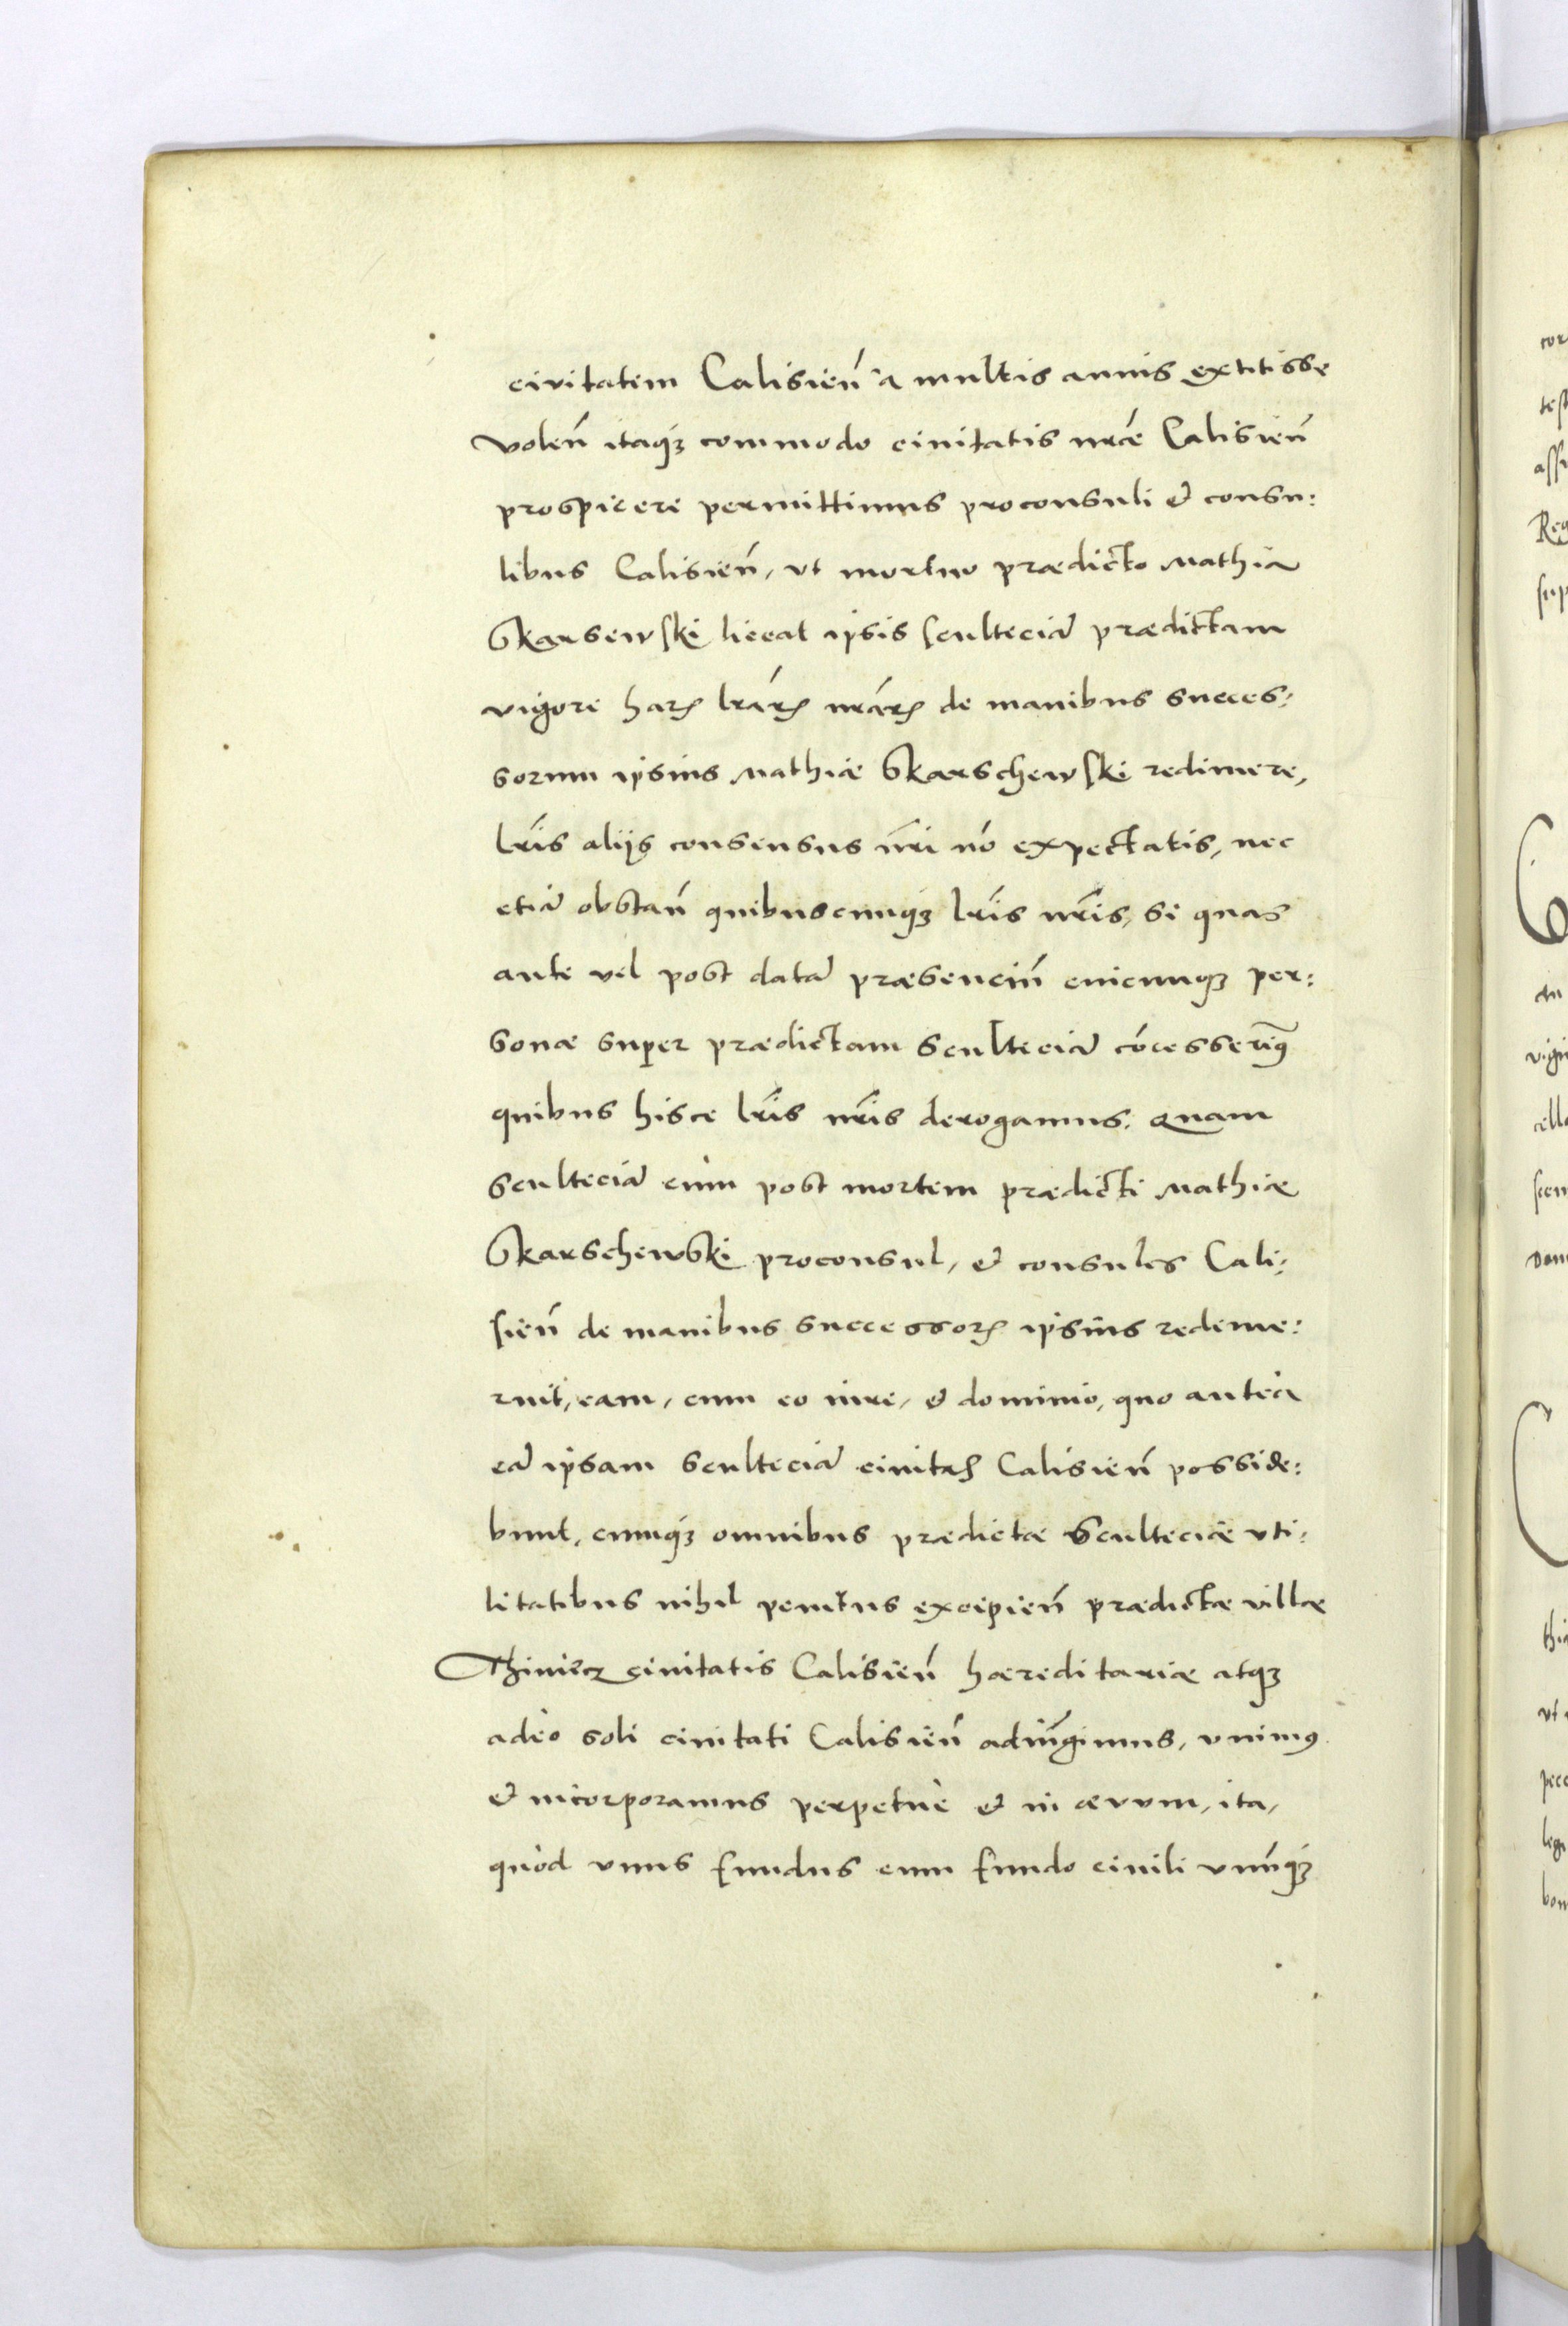 civitatem Calisien̄ a multis annis extitisse
volen̄ itaq́ꝫ commodo ciuitatis nr̄ae Calisien̄
prospicere permittimus proconsuli et consu:
libus Calisien̄, vt mortuo praedicto Mathia
Skarsewski liceat ipsis sculteciā praedictam
vigore harꝫ lrárꝫ nrárꝫ de manibus succes:
sorum ipsius Mathiae Skarschewski redimere,
lr̄is alijs consensus nr̄i nō expectatis, nec
etiā obstan̄ quibuscunq́ꝫ lr̄is nr̄is, si quas
ante vel post datā praesencin̄ cuicunqꝫ per:
sonae super praedictam sculteciā cōcesserimꝯ
quibus hisce lr̄is nr̄is derogamus. Quam
sculteciā cùm post mortem praedicti Mathiae
Skarschewski proconsul, et consules Cali:
sien̄ de manibus successorꝫ ipsius redime:
rint, eam, cum eo iure, et dominio, quo antea
eā ipsam sculteciā ciuitas Calisien̄ posside:
bunt, cumq́ꝫ omnibus praedictae sculteciae vti:
litatibus nihil penitus excipien̄ praedictae villae
Thiniecz ciuitatis Calisien̄ haereditariae atqꝫ
adeò soli ciuitati Calisien̄ adiūgimus, vnimꝯ
et incorporamus perpetuè et in aevum, ita,
quòd vnus fundus cum fundo ciuili vnūq́ꝫ